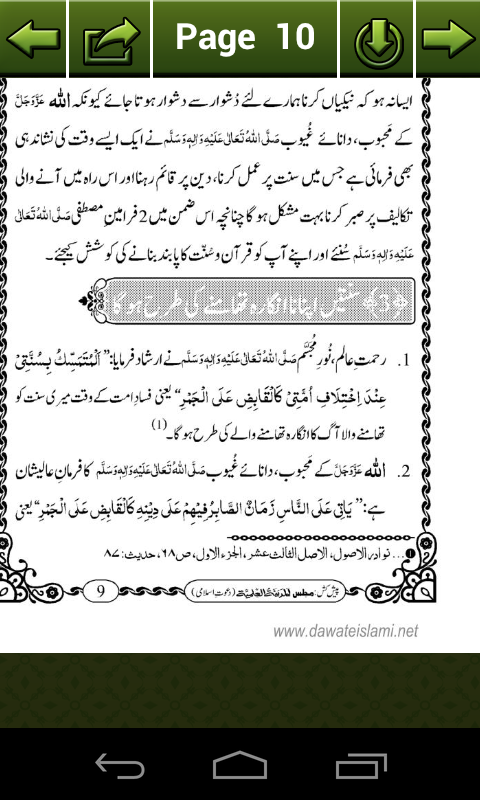 Page 10
ایسا نہ ہو کہ نیکیاں کرنا ہمارے لئے دُشوار سے دشوار ہوتا جائے کیونکہ اللہ عَزَّوَجَلَّ
کے مَحبوب، دانائے غُیوب صَلَّی اللہُ تَعَالٰی عَلَیْہِ وَاٰلِہٖ وَسَلَّم نے ایک ایسے وقت کی نشاندہی
بھی فرمائی ہے جس میں سنت پر عمل کرنا، دین پر قائم رہنا اور اس راہ میں آنے والی
تکالیف پر صبر کرنا بہت مشکل ہو گا چنانچہ اس ضمن میں 2 فرامینِ مصطفٰی صَلَّی اللہُ تَعَالٰی
عَلَیْہِ وَاٰلِہٖ وَسَلَّم سُنئے اور اپنے آپ کو قرآن و سُنّت کا پابند بنانے کی کوشش کیجئے۔
﴿3﴾ سنتیں اپنانا انگارہ تھامنے کی طرح ہو گا
1. رحمتِ عالم، نُورِ مُجَسَّم صَلَّی اللہُ تَعَالٰی عَلَیْہِ وَاٰلِہٖ وَسَلَّم نے ارشاد فرمایا: ”اَلْمُتَمَسِّکُ بِسُنَّتِیْ
عِنْدَ اِخْتِلَافِ اُمَّتِیْ کَالْقَابِضِ عَلَی الْجَمْرِ“ یعنی فسادِ امت کے وقت میری سنت کو
تھامنے والا آگ کا انگارہ تھامنے والے کی طرح ہو گا۔(1)
2. اللہ عَزَّوَجَلَّ کے مَحبوب، دانائے غُیوب صَلَّی اللہُ تَعَالٰی عَلَیْہِ وَاٰلِہٖ وَسَلَّم کا فرمانِ عالیشان
ہے: ”یَاتِیْ عَلَی النَّاسِ زَمَانٌ الصَّابِرُ فِیْھِمْ عَلٰی دِیْنِہٖ کَالْقَابِضِ عَلَی الْجَمْرِ“ یعنی
1... نوادر الاصول، الاصل الثالث عشر، الجزء الاول، ص۶۸، حدیث: ۸۷
پیش کش: مجلس المدینۃ العلمیۃ (دعوتِ اسلامی)
9
www.dawateislami.net